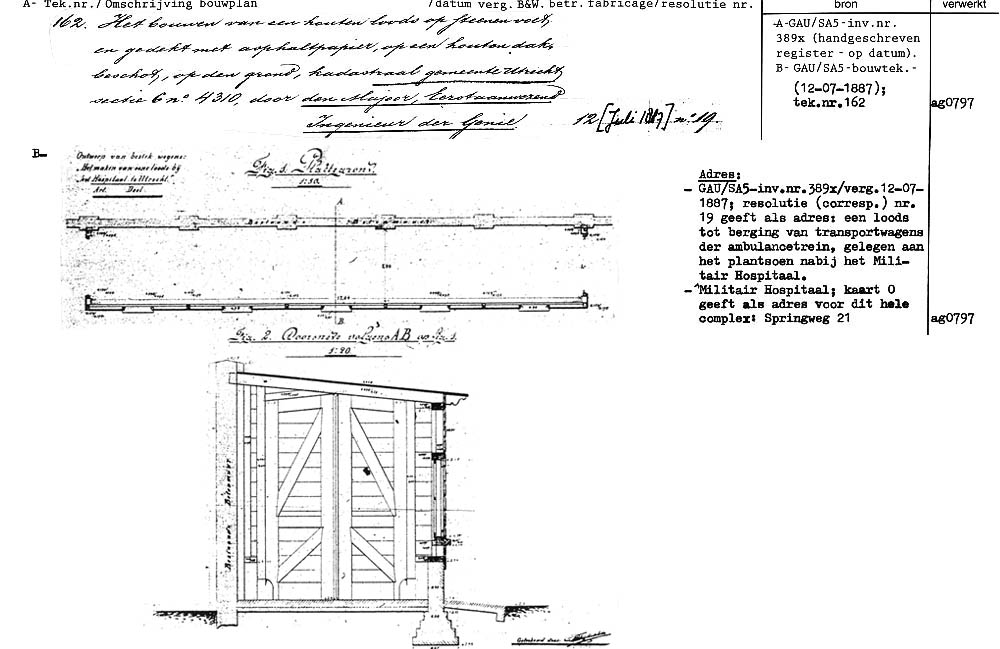 A- Tek.nr./Omschrijving bouwplan /datum verg. B&W. betr. fabricage/resolutie nr.
bron
verwerkt
162. Het bouwen van een houten loods op steenen voet,
en gedekt met asphaltpapier, op een houten dak-
beschot, op den grond, kadastraal gemeente Utrecht
sectie C no 4310, door den Majoor, Eerstaanwezend
Ingenieur der Genie. 12 [Juli 1887] no 19.
-A-GAU/SA5-inv.nr.
389x (handgeschreven
register - op datum).
B- GAU/SA5-bouwtek.-
(12-07-1887);
tek.nr.162
ag0797
B-
Ontwerp van bestek wegens:
"Het maken van eene loods bij
het Hospitaal te Utrecht."
Art. Deel.
Fig. 1. Plattegrond.
1:50.
A
Bestaande Beermuur
B
Fig. 2. Doorsnede volgens AB op Fig. 1.
1:20.
Bestaande Beermuur
Adres:
- GAU/SA5-inv.nr.389x/verg.12-07-
1887; resolutie (corresp.) nr.
19 geeft als adres: een loods
tot berging van transportwagens
der ambulancetrein, gelegen aan
het plantsoen nabij het Mili-
tair Hospitaal.
- Militair Hospitaal; kaart 0
geeft als adres voor dit hele
complex: Springweg 21
ag0797